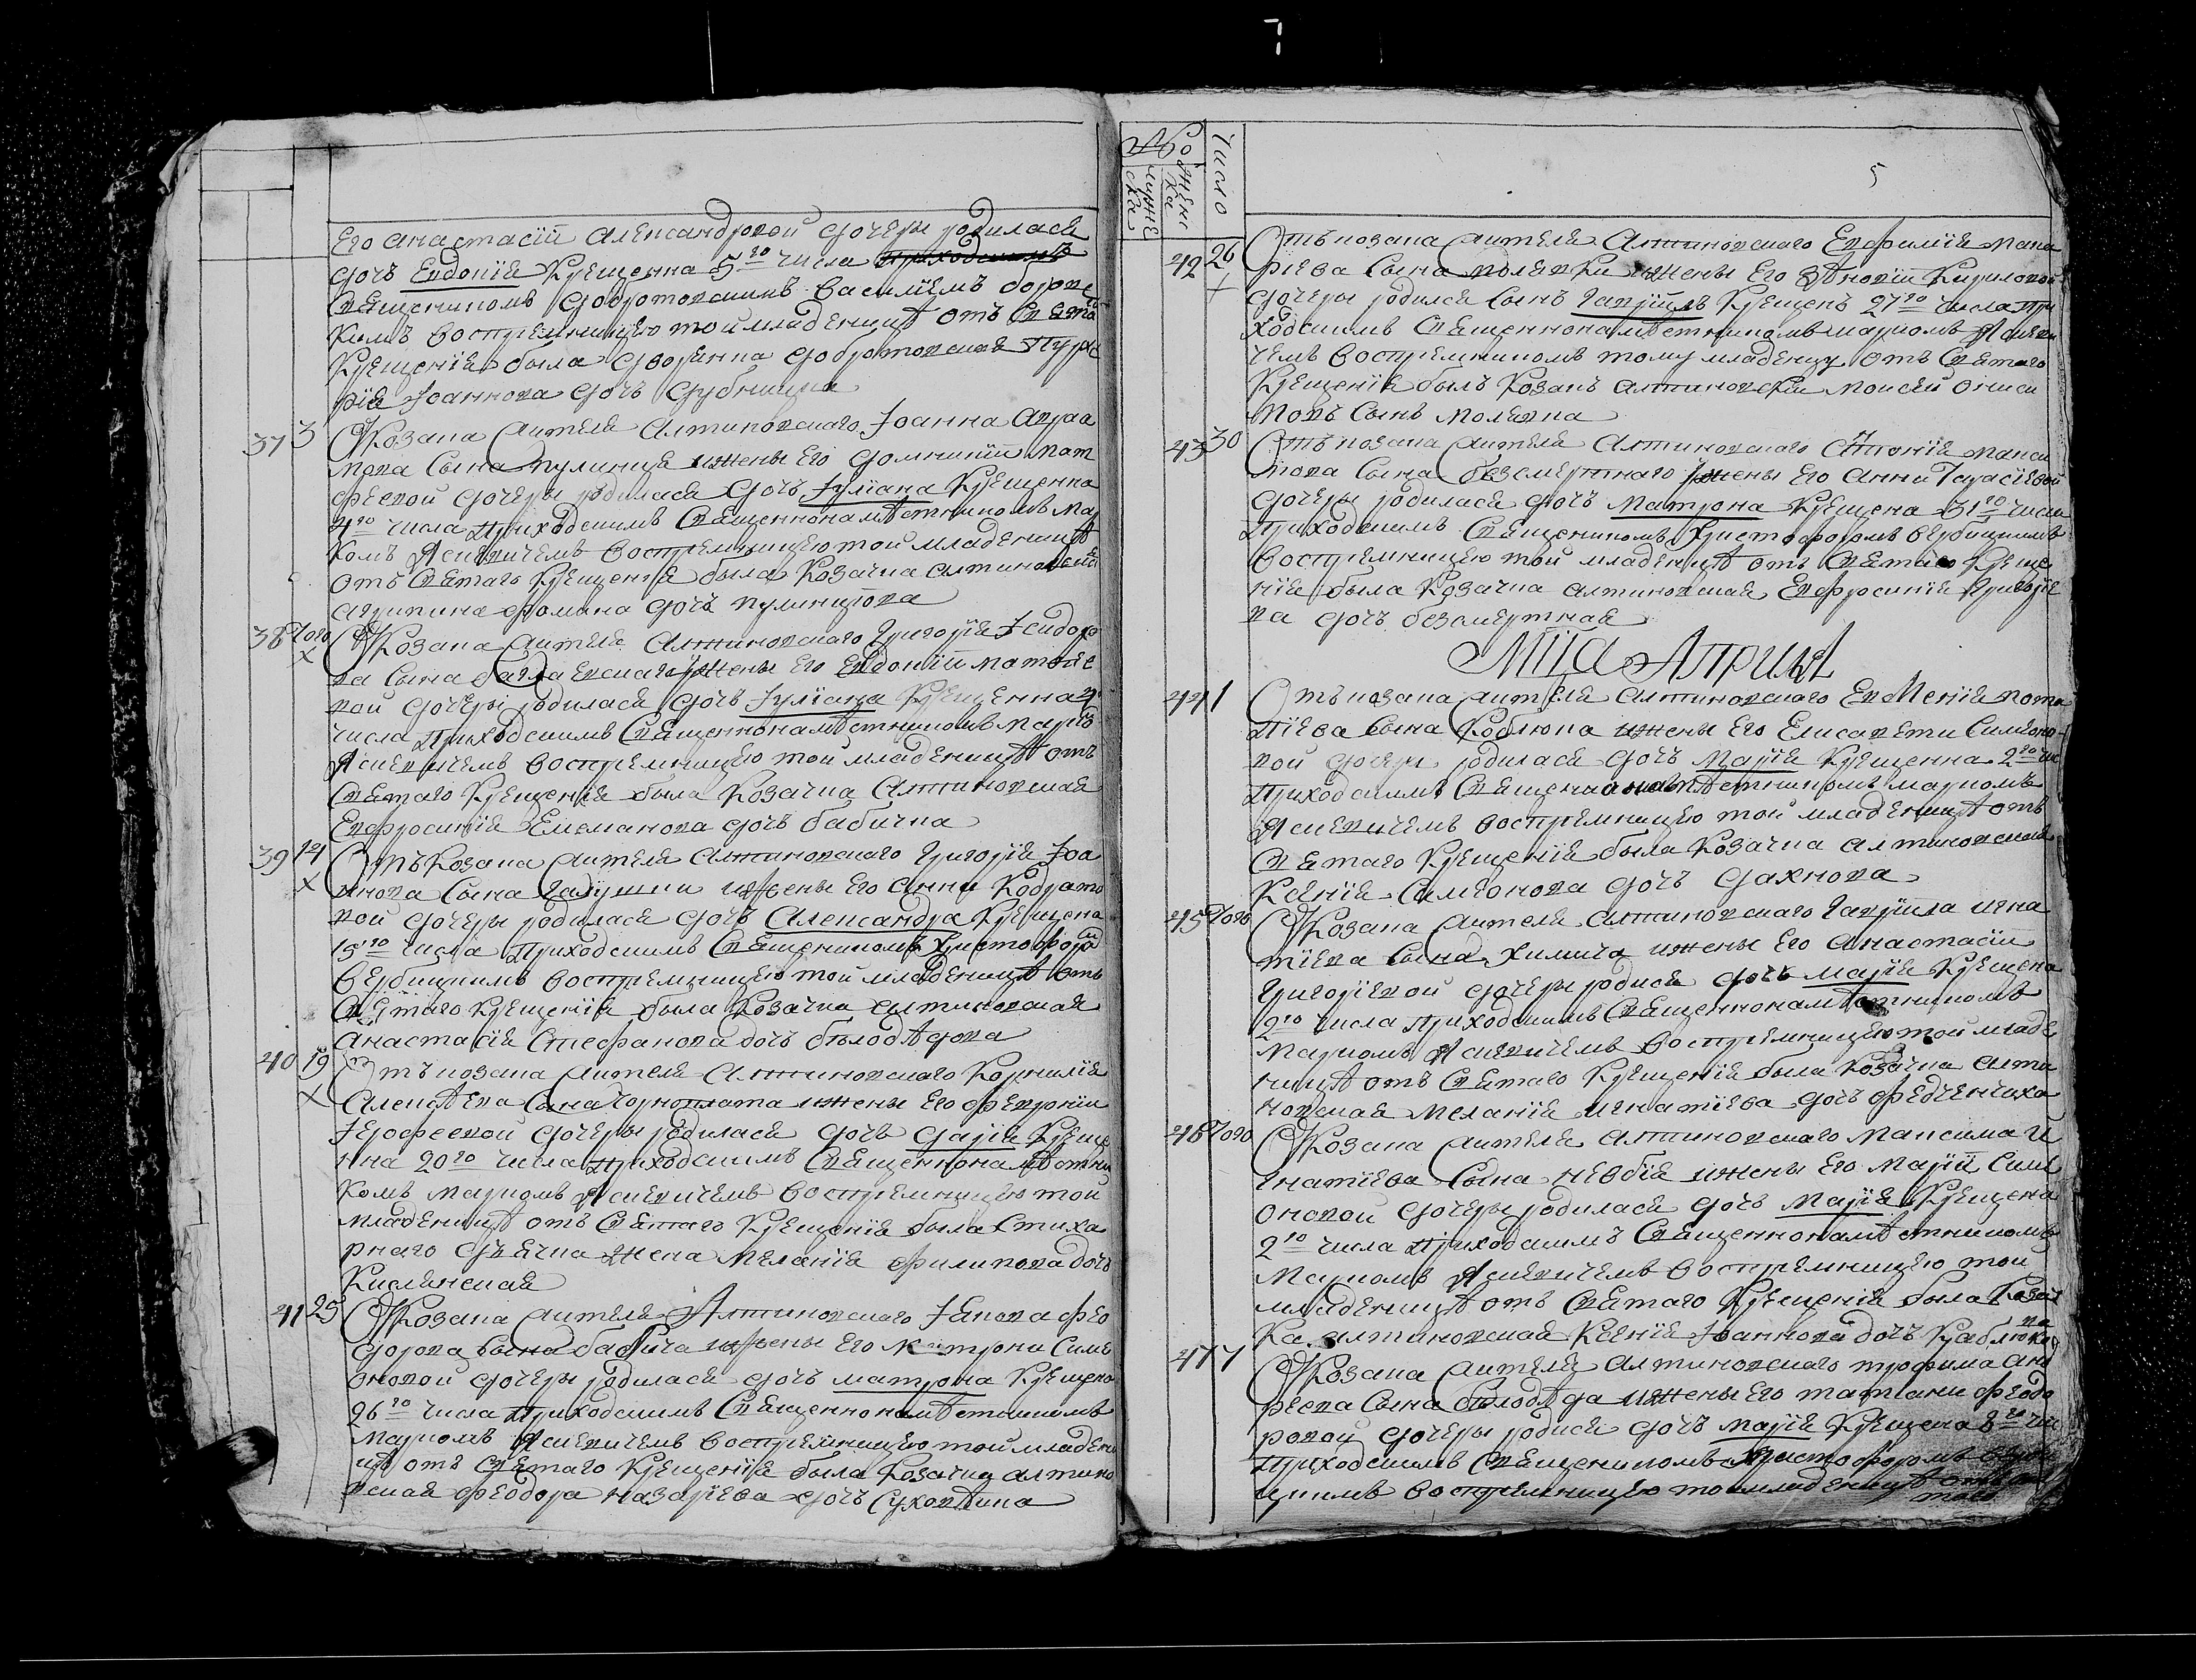 Его анастасіи александровои дочеры родилася
дочъ Евдокія Крещенна 5го числа приходскимъ
священникомъ добротовскимъ василіемъ
кимъ восприемницею тои младеницѣ отъ свята
Крещенія была дворянна добротовская
рія Іоаннова дочъ
37 3 Ѿ Козака жителя алтиновского Іоанна авраа
мова сына кулинца и жены его домникіи мат
феевой дочеры родилася дочъ Іуліана крещенна
4го числа приходскимъ священнонамѣстникомъ Мар
комъ Ясневичемъ восприемницею тои младеницѣ
отъ святаго крещенія была козачка алтиновская
агрипина фомина дочъ
38 того
х Ѿ Козака жителя алтиновского Григорія Ісидоро
ва сына и жены его евдокіи матфіе
вой дочеры родилася дочъ Іуліана крещенна 4
числа приходскимъ священнонамѣстникомъ марко
Ясневичемъ восприемницею тои младеницѣ отъ
святаго крещенія была козачка алтиновская
Евфросинія дочъ бабичка
39 14
х Отъ Козака жителя алтиновского Григорія Іоа
ннова сына и жены его анни Кодрато
вой дочеры родилася дочъ александра крещена
15го числа приходскимъ священникомъ христофоро
вербицкимъ восприемницею тои младеницѣ отъ
святаго крещенія была козачка алтиновская
анастасія стефанова дочъ бѣлодѣдова
40 19
х Отъ козака жителя алтиновского Корнилія
алексѣева сына и жены его февроніи
Іерофеевой дочеры родилася дочъ дарія креще
нна 20го числа приходскимъ священнонамѣстни
комъ маркомъ Ясневичемъ восприемницею тои
младеницѣ отъ святаго крещенія была стиха
рнаго дячка жена меланія филипова дочъ
Кислянская
41 25 Ѿ Козака жителя алтиновского Іакова фео
дорова сына бабича и жены его матрони Симе
оновой дочеры родилася дочъ матрона крещена
26го числа приходскимъ священнонамѣстникомъ
маркомъ Ясневичемъ восприемницею тои младени
цѣ отъ святаго крещенія была козачка алтино
вская феодора назаріева дочъ
Число
женс
ка
мужe
ска
5
42 26
х Отъ козака жителя алтиновского Евфимія мака
ріева сына полякки и жены его Кириловой
дочеры родился сынъ гавріилъ крещенъ 27го числа при
ходскимъ священнонамѣстникомъ маркомъ Ясневи
чемъ восприемникомъ тому младенцу отъ святаго
крещенія былъ козакъ алтиновски моисей ониси
мовъ сынъ
43 30 Отъ козака жителя алтиновского антонія макси
мова сына безсмертнаго и жены его анни
дочеры родилася дочъ матрона крещена 31го числа
приходскимъ священникомъ христофоромъ вербицкимъ
восприемницею тои младеницѣ отъ святаго креще
нія была козачка алтиновская Евфросинія григоріе
ва дочъ безсмертная
Мца Априля
44 1 Отъ козака жителя алтиновского Евменія пота
піева сына Коблюка и жены его Елисавети Симеоно
вой дочеры родилася дочъ Марія крещенна 2го чис
приходскимъ священнонамѣстникомъ маркомъ
Ясневичемъ восприемницею тои младеницѣ отъ
святаго крещенія была козачка алтиновская
Ксенія Симеонова дочъ
45 того Ѿ Козака жителя алтиновского гавріила игна
тіева сына химича и жены его анастасіи
григоріевой дочеры родися дочъ марія крещена
2го числа приходскимъ священнонамѣстникомъ
маркомъ Ясневичемъ восприемницею тои младе
ницѣ отъ святаго крещенія была козачка алти
новская меланія игнатіева дочъ
46 того Ѿ Козака жителя алтиновского максима и
гнатіева сына и жены его маріи Симе
оновой дочеры родилася дочъ марія крещена
2го числа приходскимъ священнонамѣстникомъ
маркомъ Ясневичемъ восприемницею тои
младеницѣ отъ святаго крещенія была козач
ка алтиновская ксенія Іоаннова дочъ
47 7 Ѿ Козака жителя алтиновского трофима анд
реева сына бѣлодѣда и жены его татіани феодо
ровой дочеры родися дочъ марія крещена 8го чис
приходскимъ священникомъ христофоромъ верби
цкимъ восприемницею тои младеницѣ отъ свя
таго